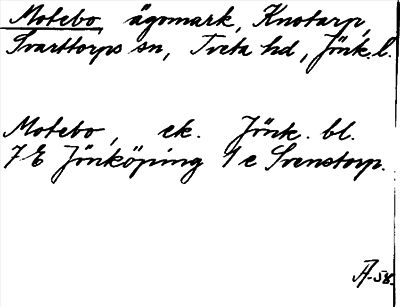 Motebo, ägomark, Knotarp,
Svarttorps sn, Tveta hd, Jönk. l.
Motebo, ek. Jönk. bl.
7 E Jönköping 1 e Svenstorp.
Ä-58.